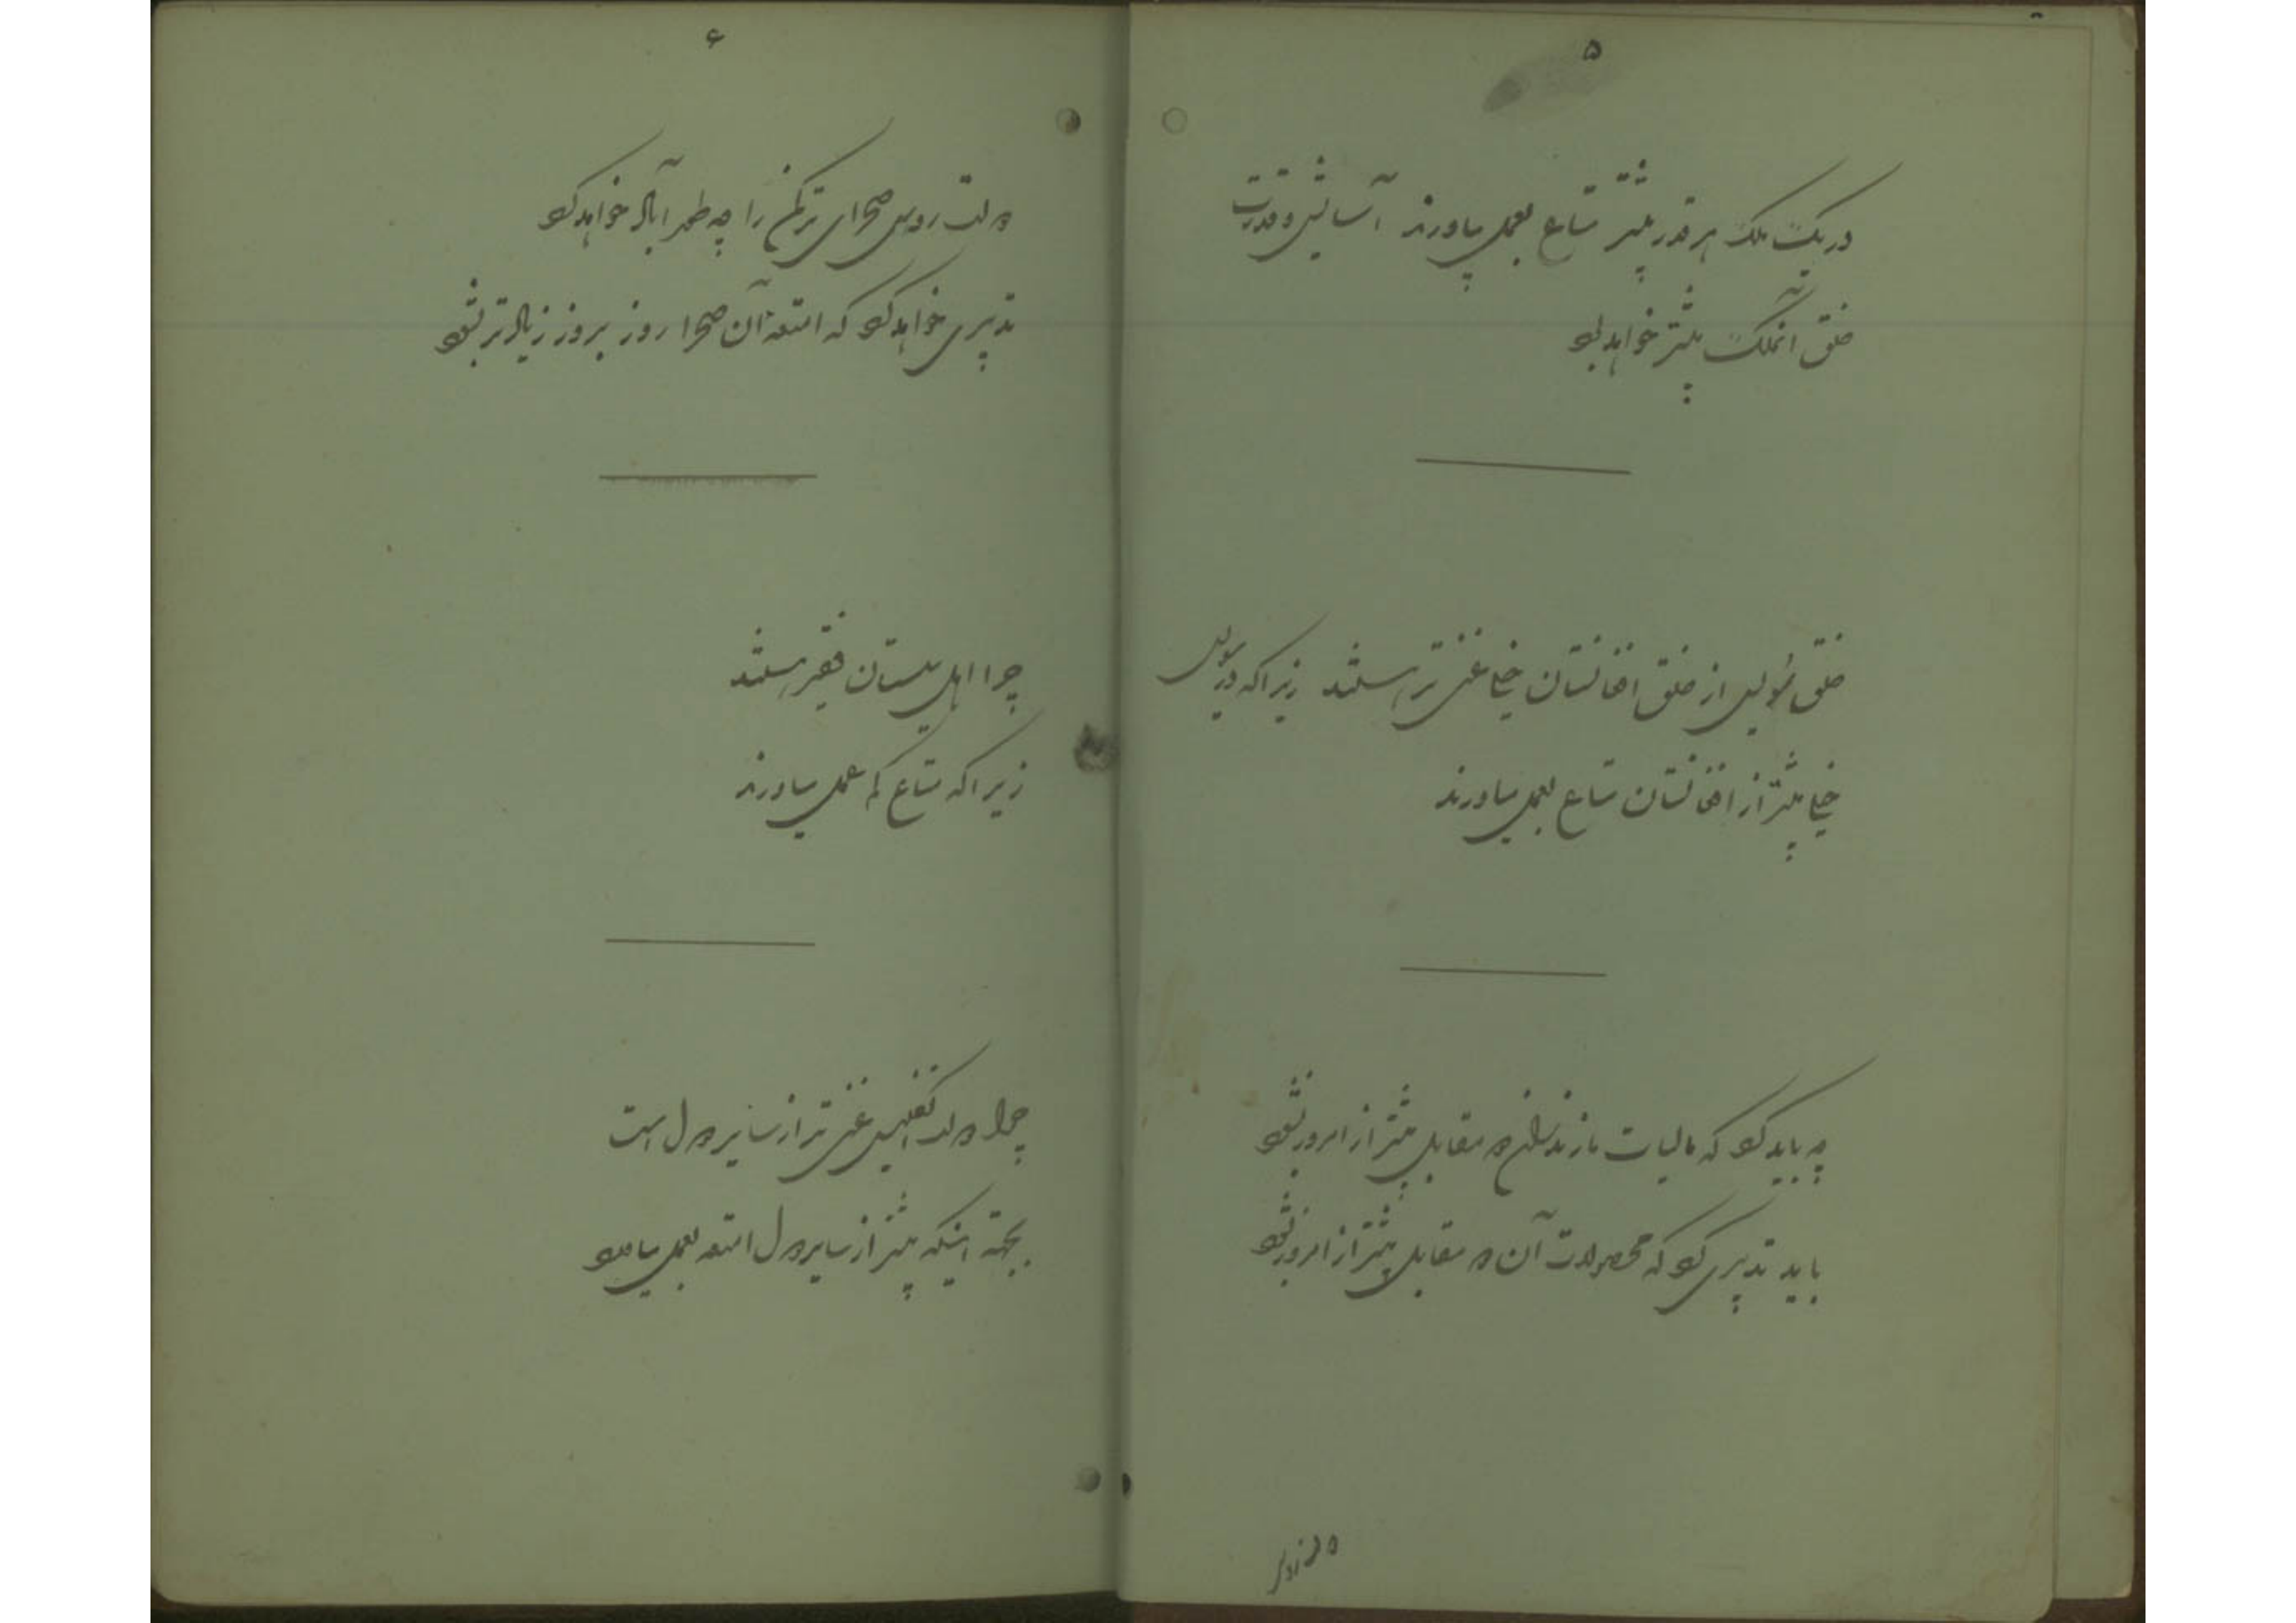 ۵
در یک ملک هر قدر بیشتر متاع بعمل بیاورند آسایش و قدرت
خلق آنملک بیشتر خواهد بود
خلق سویس از خلق افغانستان خیلی غنی‌تر هستند زیرا که در سویس
خیلی بیشتر از افغانستان متاع بعمل میاورند
چه باید کرد که مالیات مازندران ده مقابل بیشتر از امروز بشود
باید تدبیری کرد که محصولات آن ده مقابل بیشتر از امروز بشود
۶
دولت روس صحرای ترکمن را چه طور آباد خواهد کرد
تدبیری خواهد کرد که امتعه آن صحرا روز بروز زیادتر بشود
چرا اهل سیستان فقیر هستند
زیرا که متاع کم عمل میاورند
چرا دولت انگلیس غنی‌تر از سایر دول است
بجهة اینکه بیشتر از سایر دول امتعه بعمل میاورد